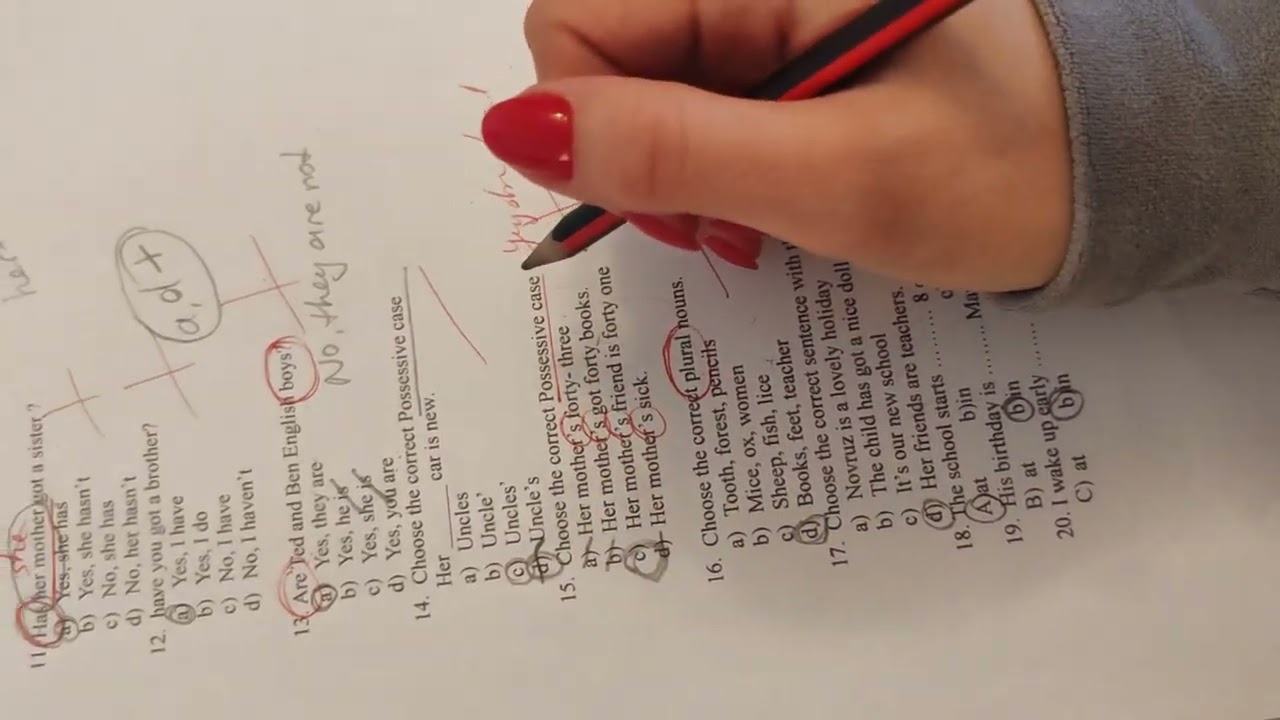 her
11. Has her mother got a sister?
she
a) Yes, she has
b) Yes, she hasn't
c) No, she has
d) No, her hasn't
12. have you got a brother?
a) Yes, I have
b) Yes, I do
c) No, I have
d) No, I haven't
a, d +
13. Are Ted and Ben English boys?
a) Yes, they are
b) Yes, he is
c) Yes, she is
d) Yes, you are
No, they are not
14. Choose the correct Possessive case
Her ______ car is new.
a) Uncles
b) Uncle'
c) Uncles'
d) Uncle's
15. Choose the correct Possessive case
a) Her mother's forty- three
b) Her mother's got forty books.
c) Her mother's friend is forty one
d) Her mother's sick.
16. Choose the correct plural nouns.
a) Tooth, forest, pencils
b) Mice, ox, women
c) Sheep, fish, lice
d) Books, feet, teacher
17. Choose the correct sentence with
a) Novruz is a lovely holiday
b) The child has got a nice doll
c) It's our new school
d) Her friends are teachers.
18. The school starts ......... 8
A) at b) in c
19. His birthday is ......... Ma
B) at b) in
20. I wake up early ........
C) at b) in